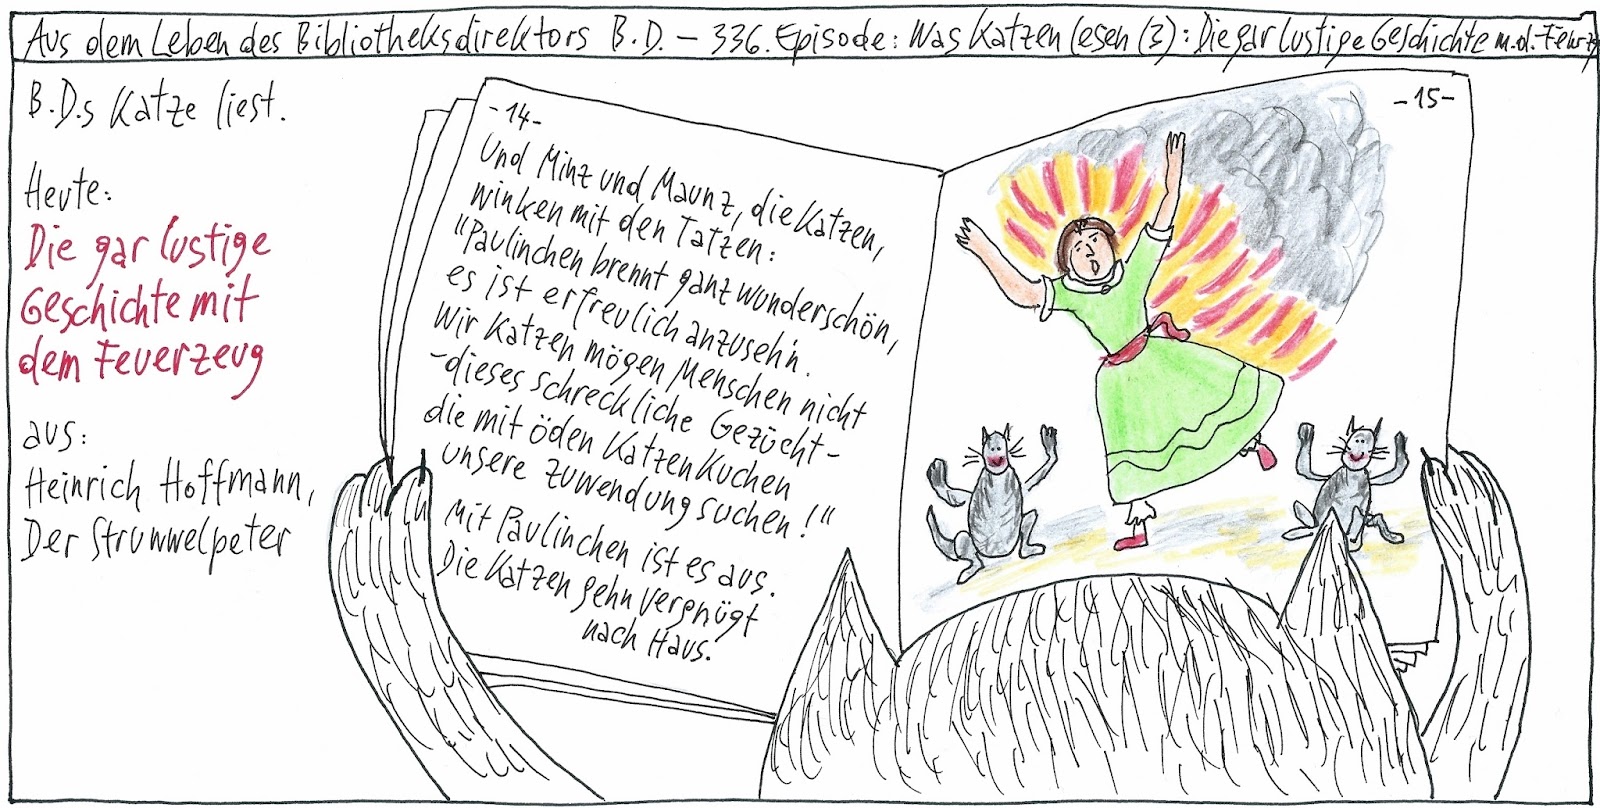 Aus dem Leben des Bibliotheksdirektors B.D. – 336. Episode: Was Katzen lesen (3): Die gar lustige Geschichte m.d. Feuerzg
B.D.s Katze liest.
Heute:
Die gar lustige
Geschichte mit
dem Feuerzeug
aus:
Heinrich Hoffmann,
Der Struwwelpeter
-14-
Und Minz und Maunz, die Katzen,
winken mit den Tatzen:
"Paulinchen brennt ganz wunderschön,
es ist erfreulich anzuseh'n.
Wir Katzen mögen Menschen nicht
-dieses schreckliche Gezücht-
die mit öden Katzenkuchen
unsere Zuwendung suchen!"
Mit Paulinchen ist es aus.
Die Katzen gehn vergnügt
nach Haus.
-15-